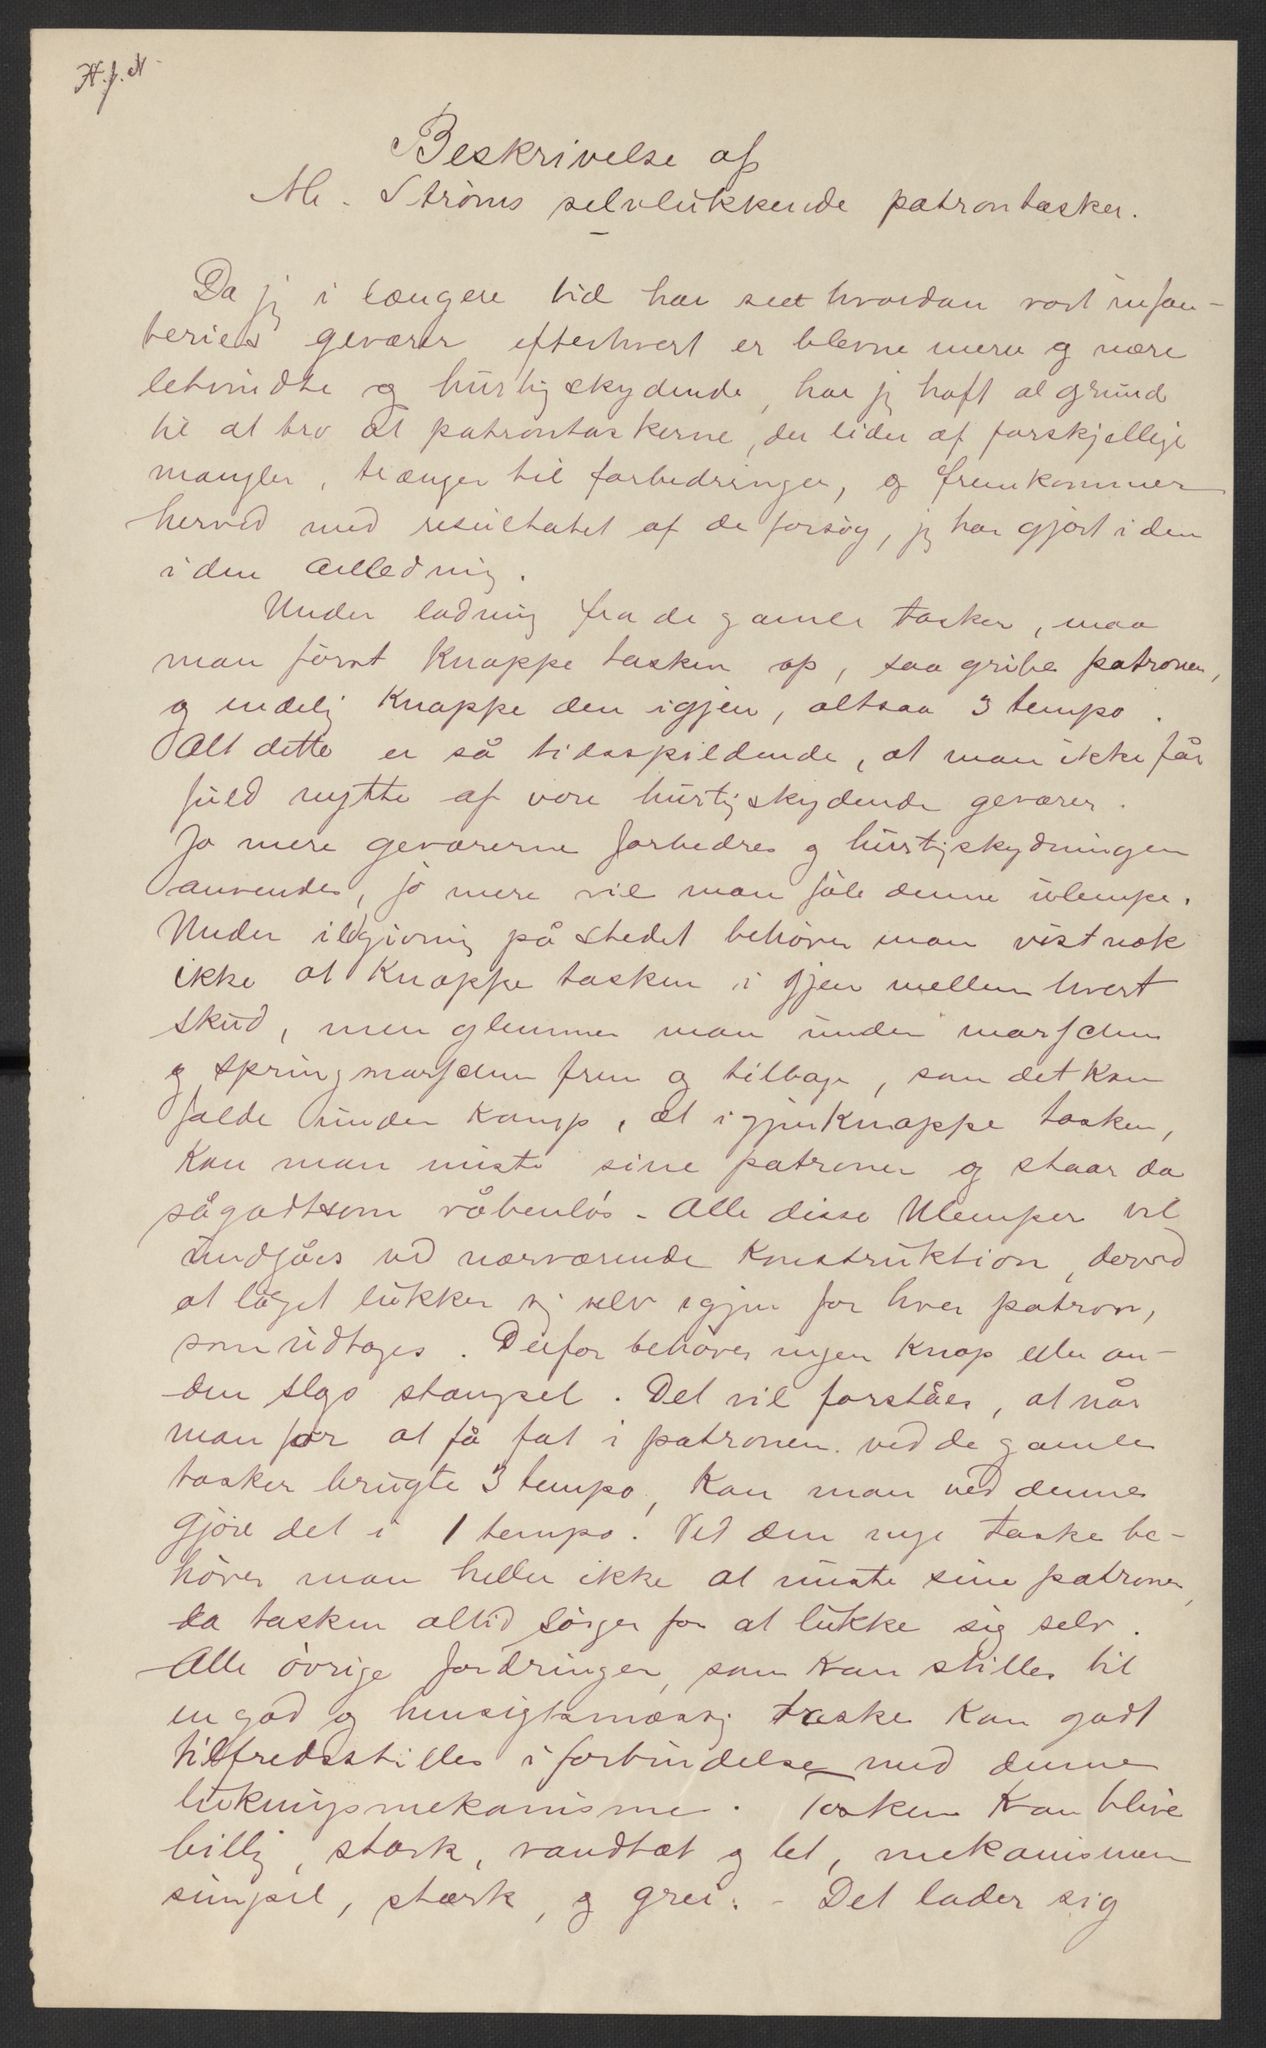 H.J.N.
Beskrivelse af
M. Ströms selvlukkende patrontasker.
Da jeg i længere tid har seet hvordan vort infan-
teries geværer efterhvert er blevne mere og mere
letvindte og hurtigskydende, har jeg haft al grund
til at tro at patrontaskerne, der lider af forskjellige
mangler, trænger til forbedringer, og fremkommer
herved med resultatet af de forsög, jeg har gjort i den
i den anledning.
Under ladning fra de gamle tasker, maa
man först knappe tasken op, saa gribe patronen,
og endelig knappe den igjen, altsaa 3 tempo.
Alt dette er så tidsspildende, at man ikke får
fuld nytte af vore hurtigskydende geværer.
Jo mere geværerne forbedres og hurtigskydningen
anvendes, jo mere vil man föle denne ulempe.
Under ildgivning på stedet behöver man vistnok
ikke at knappe tasken i gjen mellem hvert
skud, men glemmer man under marschen
og springmarschen frem og tilbage, som det kan
falde under kamp, at igjenknappe tasken,
kan man miste sine patroner og staar da
sågodtsom våbenlös. Alle disse Ulemper vil
undgåes ved nærværende konstruktion, derved
at låget lukker sig selv igjen for hver patron,
som udtages. Derfor behöves ingen knap eller an-
den slags stængsel. Det vil forståes, at når
man for at få fat i patronen ved de gamle
tasker brugte 3 tempo, kan man ved denne
gjöre det i 1 tempo. Ved den nye taske be-
höver man heller ikke at miste sine patroner,
da tasken altid sörger for at lukke sig selv.
Alle övrige fordringer, som kan stilles til
en god og hensigtsmæssig taske kan godt
tilfredsstilles i forbindelse med denne
lukningsmekanisme. Tasken kan blive
billig, stærk, vandtæt og let, mekanismen
simpel, stærk, og grei. - Det lader sig